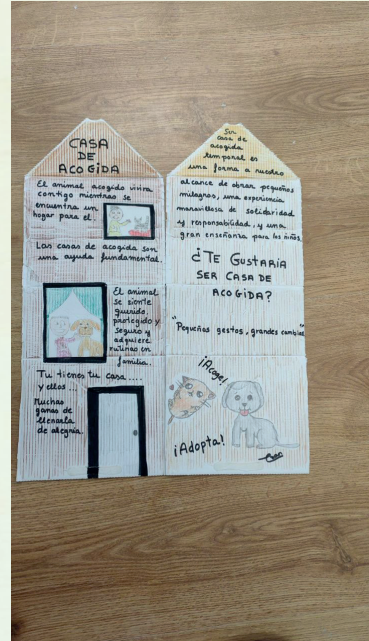 CASA
DE
ACOGIDA
El animal acogido vivira
contigo mientras se
encuentra un
hogar para el.
Las casas de acogida son
una ayuda fundamental.
El animal
se siente
querido,
protegido y
seguro y
adquiere
rutinas en
familia.
Tu tienes tu casa....
y ellos ...
Muchas
ganas de
llenarla
de alegría.
Ser
casa de
acogida
temporal es
una forma a nuestro
alcance de obrar pequeños
milagros, una experiencia
maravillosa de solidaridad
y responsabilidad, y una
gran enseñanza para los niños
¿TE GUSTARIA
SER CASA DE
ACOGIDA?
"Pequeños gestos, grandes cambios"
¡Acoge!
¡Adopta!